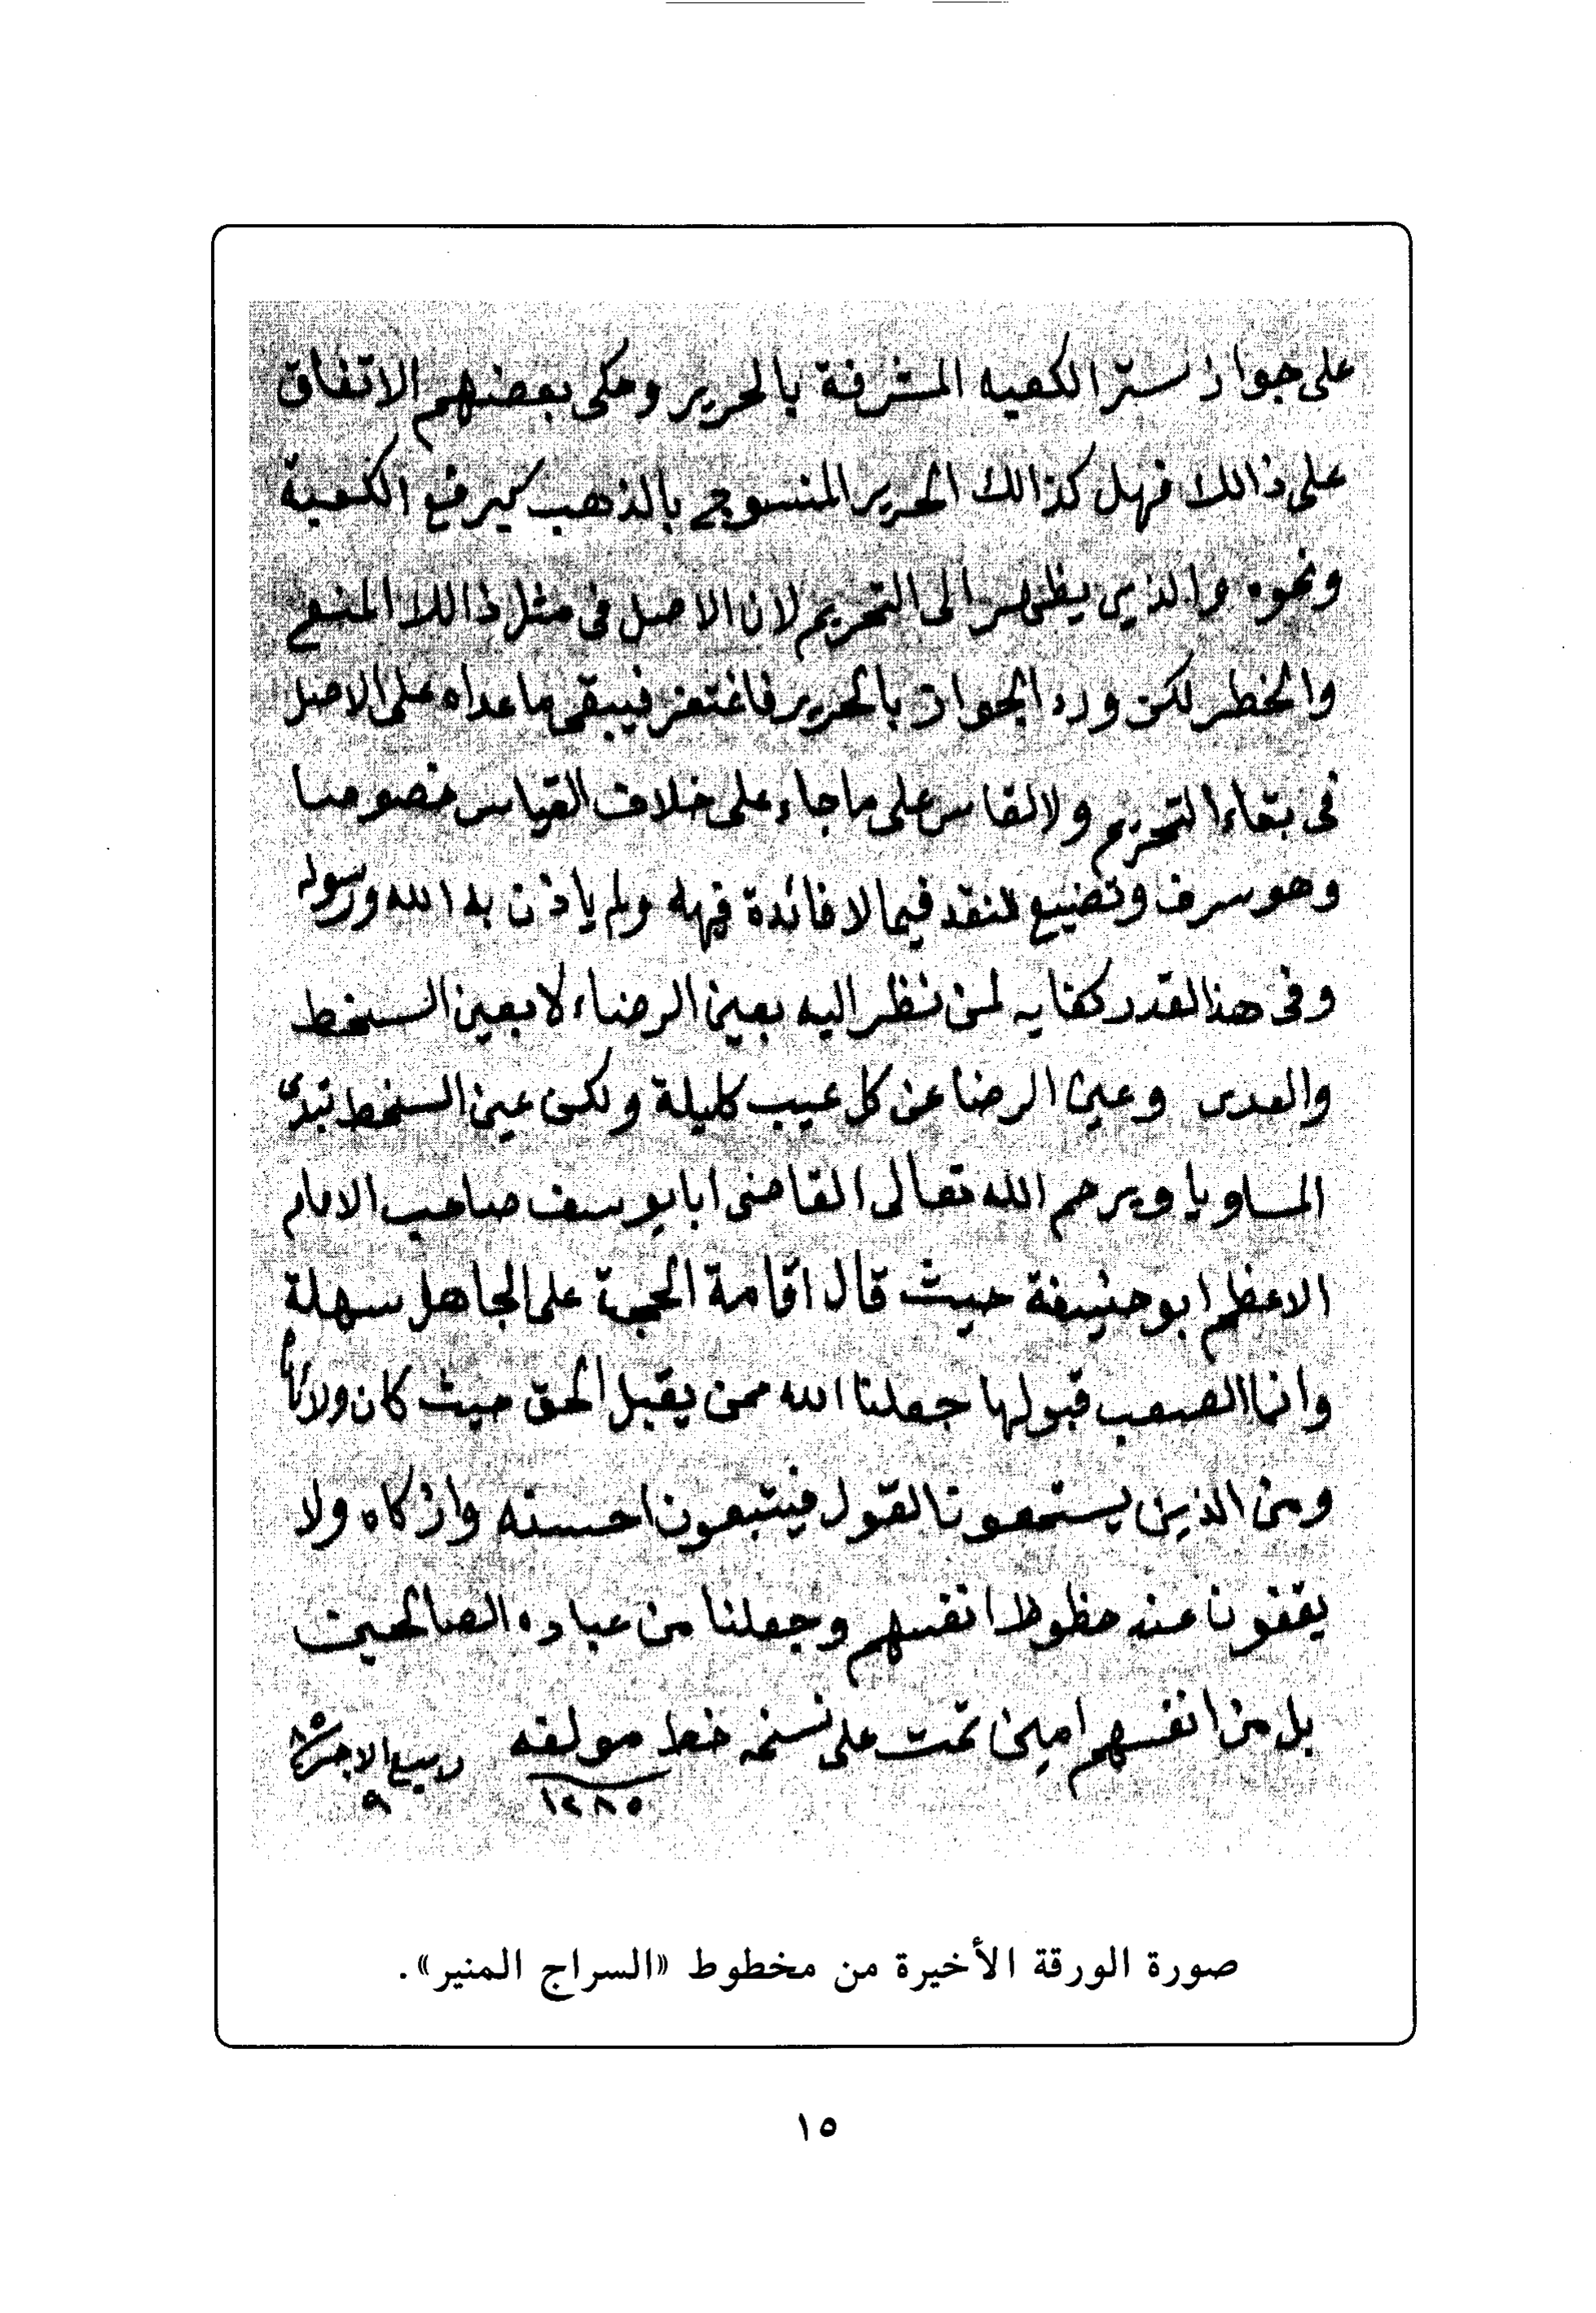 على جواز ستر الكعبه المشرفة بالحرير وحكى بعضهم الاتفاق
على ذالك فهل كذالك الحرير المنسوج بالذهب كبرقع الكعبة
ونحوه والذى يظهر الى التحريم لان الاصل فى مثل ذالك المنع
والخطر لكن ورد الجواز بالحرير فاغتفر فيبقى ماعداه على الاصل
فى بقاء التحريم ولا لقاس على ماجاء على خلاف القياس خصوصا
وهو سرف وتضييع للنقد فيما لا فائدة فيهه ولم ياذن به الله ورسوله
وفى هذالقدر كفايه لمن نظر اليه بعين الرضاء لا بعين السخط
والعدس وعين الرضا عن كل عيب كليلة ولكن عين السخط تبدى
المساويا ويرحم الله تعالى القاضى ابا يوسف صاحب الامام
الاعظم ابو حنيفة حيث قال اقامة الحجة على الجاهل سهلة
وانما الصعب قبولها جعلنا الله ممن يقبل الحق حيث كان
ومن الذين يستمعون القول فيتبعون احسنه وازكاه ولا
يقفون عنه حظوظ انفسهم وجعلنا من عباده الصالحين
بل من انفسهم امين تمت على نسخه خط مولفه ربيع الاخر
١٢٨٥ ٩
صورة الورقة الأخيرة من مخطوط «السراج المنير».
١٥